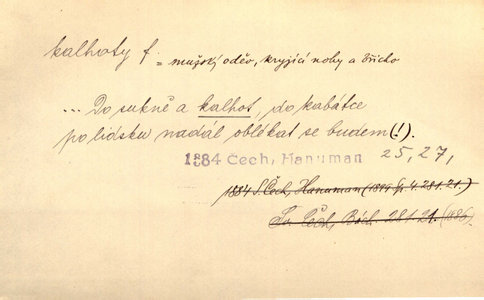 kalhoty f. = mužský oděv, kryjící nohy a břicho
... Do sukně a kalhot, do kabátce
po lidsku nadál oblékat se budem (!).
1884 Čech, Hanuman 25, 27,
1884 S. Čech, Hanuman
Sv. Čech, 281. 21.